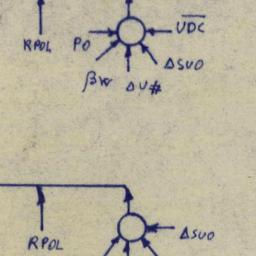 RPOL PO UDC
ΔSUO
βW ΔU#
RPOL ΔSUO